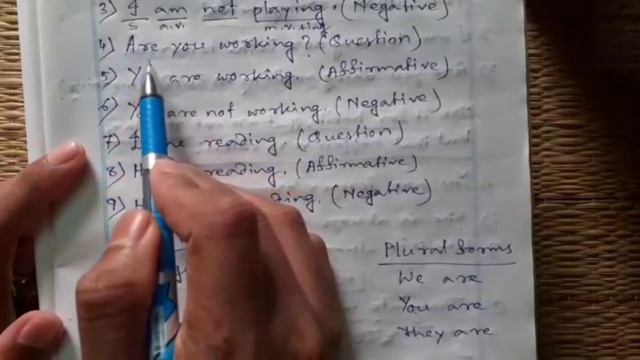 3) I am not playing. (Negative)
S a.v. m.v.+ing
4) Are you working? (Question)
5) are working. (Affirmative)
6) are not working. (Negative)
7) reading. (Question)
8) reading. (Affirmative)
9) (Negative)
Plural forms
We are
You are
They are